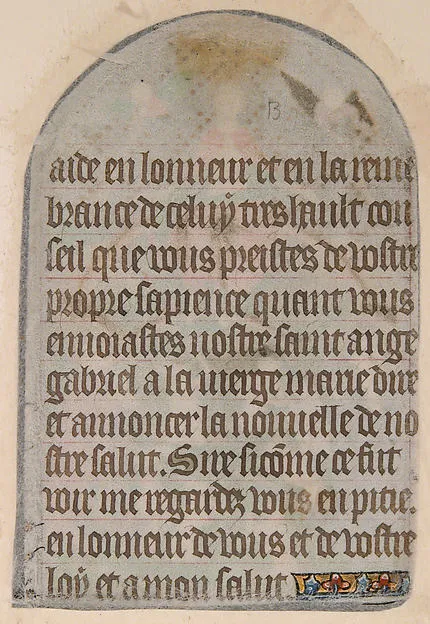 B
aide en lonneur et en la rem
brance de celuÿ tres hault con
seil que vous preistes de vostre
propre sapience quant vous
enuoiastes nostre saint ange
gabriel a la uierge marie dire
et annoncer la nouuelle de no
stre salut. Sire sicōme ce fut
voir me regardez vous en pitie.
en lonneur de vous et de vostre
loÿ et a mon salut